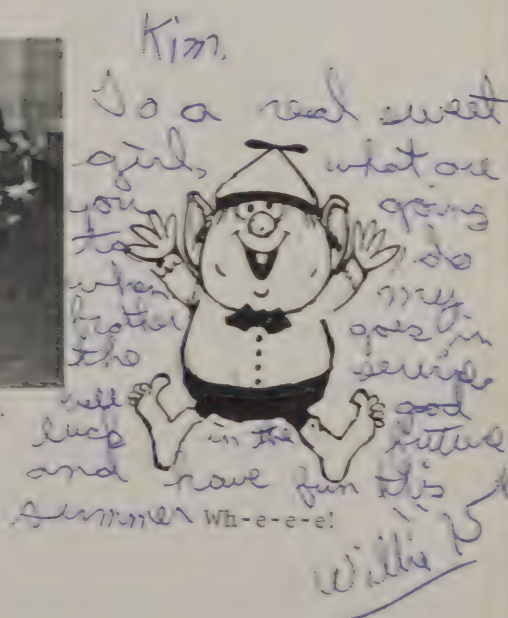 Kim,
To a real sweet
girl, what are
you going
to do
when my
brother goes in
the service
well good
luck in the future
and have fun this
summer Wh-e-e-e!
Willie K